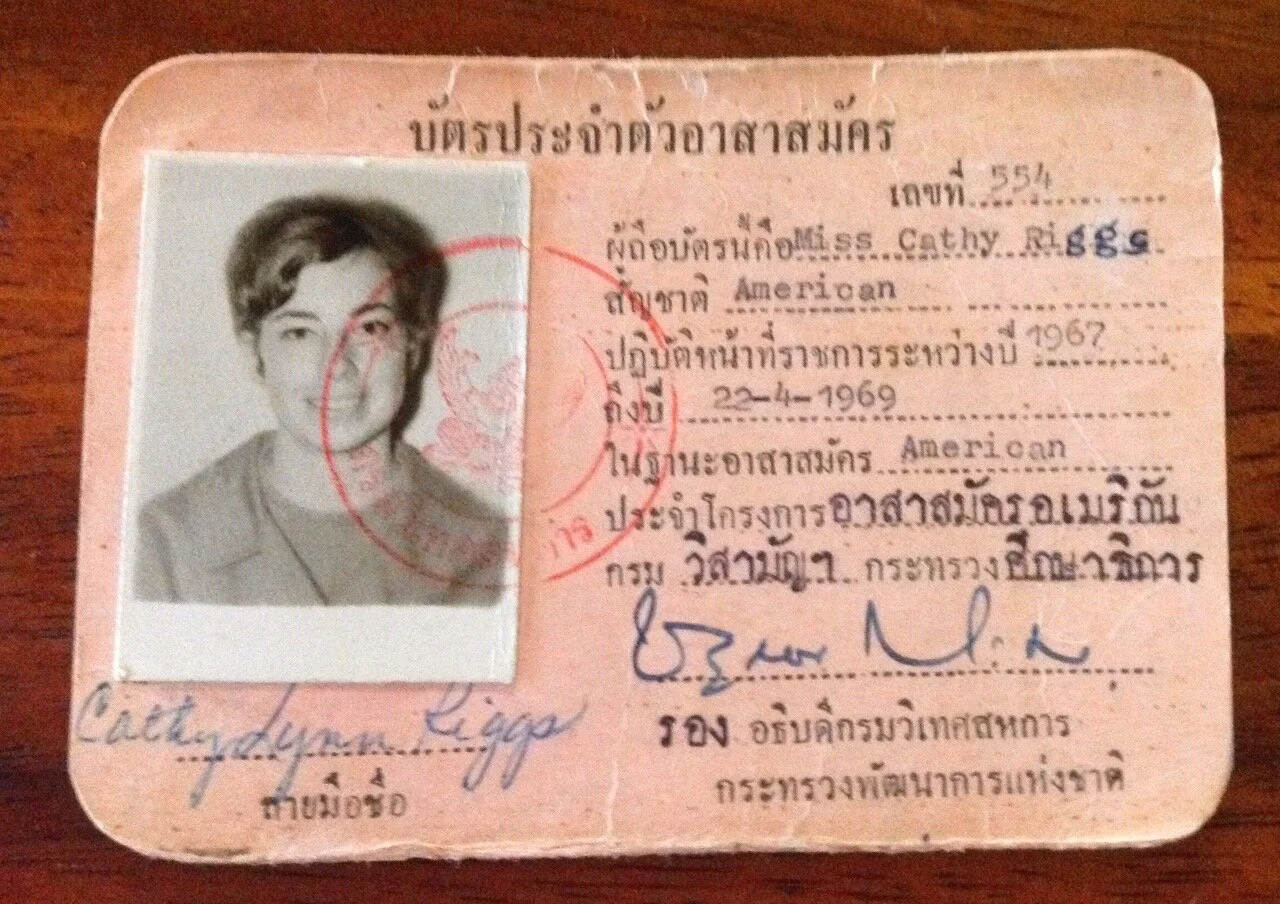 บัตรประจำตัวอาสาสมัคร
เลขที่ 554
ผู้ถือบัตรนี้คือ Miss Cathy Riggs
สัญชาติ American
ปฏิบัติหน้าที่ราชการระหว่างปี 1967
ถึงปี 22-4-1969
ในฐานะอาสาสมัคร American
ประจำโครงการ อาสาสมัครอเมริกัน
กรม วิสามัญฯ กระทรวง ศึกษาธิการ
Cathy Lynn Riggs
ลายมือชื่อ
รอง อธิบดีกรมวิเทศสหการ
กระทรวงพัฒนาการแห่งชาติ